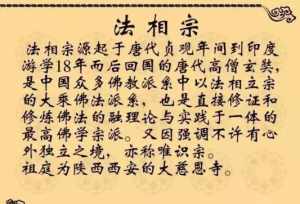 法相宗
法相宗源起于唐代贞观年间到印度
游学18年而后回国的唐代高僧玄奘，
是中国众多佛教派系中以法相立宗
的大乘佛法派系，也是直接修证和
修炼佛法的融理论与实践于一体的
最高佛学宗派。又因强调不许有心
外独立之境，亦称唯识宗。
祖庭为陕西西安的大慈恩寺。